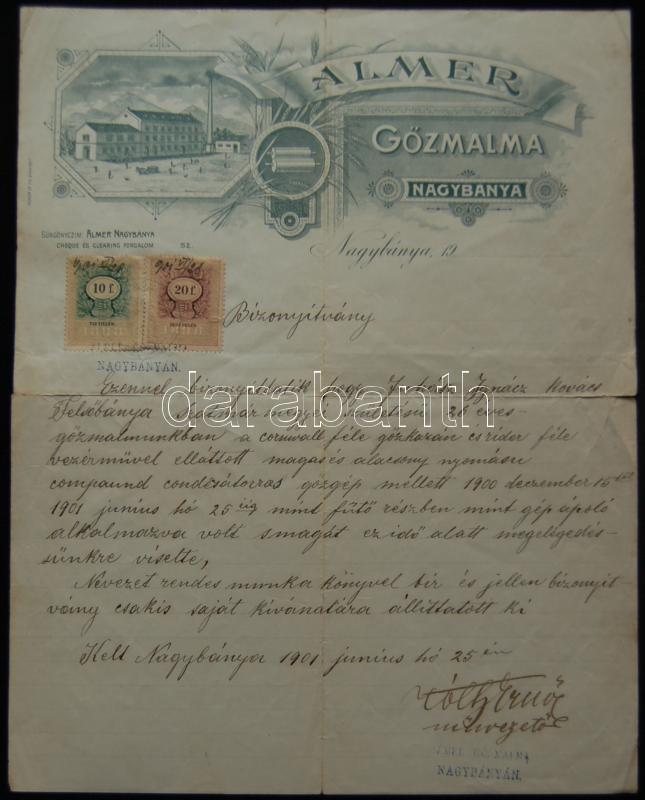 ALMER
GŐZMALMA
NAGYBÁNYA
SÜRGÖNYCZIM: ALMER NAGYBÁNYA
CHEQUE ÉS CLEARING FORGALOM SZ.
Nagybánya, 19
10 f.
20 f.
Bizonyitvány
NAGYBÁNYÁN.
Ezennel bizonyittatik hogy Ignácz kovács
Felsőbánya Szatmár megyei születésü 26 éves
gőzmalmunkban a cornwall féle gőzkazán csridor féle
vezérművel ellátott magas és alacsony nyomásu
compaund condesátoros gőzgép mellett 1900 deczember 15
1901 junius hó 25 éig mint fűtő részben mint gép ápoló
alkalmazva volt s magát ez idő alatt megelégedés-
sünkre viselte,
Nevezet rendes munka könyvel bir és jellen bizonyit
vány csakis saját kivánatára állittatott ki
Kelt Nagybánya 1901 junius hó 25 én
Tóth Ernő
művezető
NAGYBÁNYÁN.
darabanth